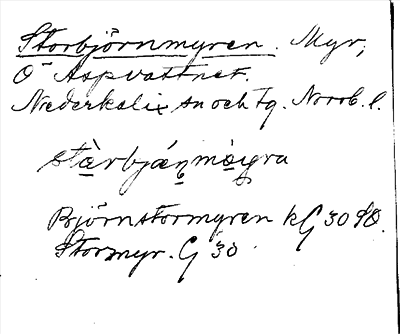 Storbjörnmyren. Myr,
Ö Aspvattnet.
Nederkalix sn och tg. Norrb. l.
stàrbjáṇmò̱yra
Björnstormyren kG 30 SO.
Stormyr. G 30.